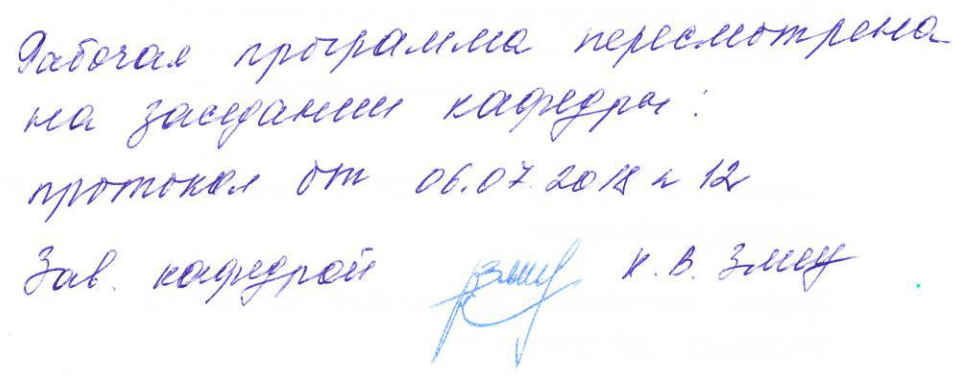 Рабочая программа пересмотрена
на заседании кафедры:
протокол от 06.07.2018 н 12
Зав. кафедрой К.В. Змеу